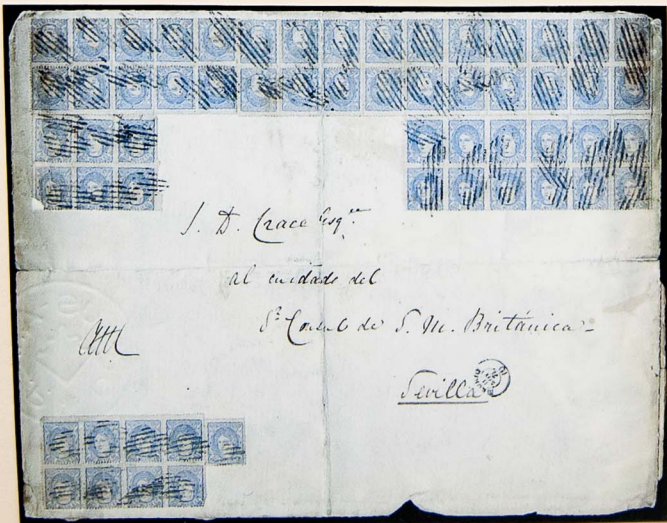 J. D. Crace Esqre
al cuidado del
Sr Consul de S. M. Británica -
Sevilla